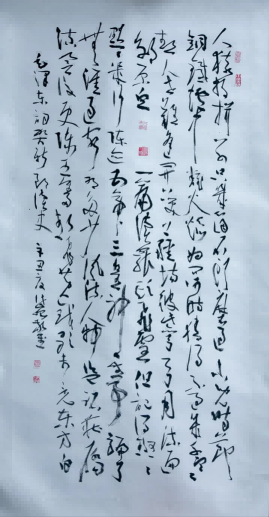 人猿相揖别只几个石头磨过小儿时节
铜铁炉中翻火焰为问何时猜得不过几千寒
热人世难逢开口笑上疆场彼此弯弓月流遍
了郊原血一篇读罢头飞雪但记得斑斑
点点几行陈迹五帝三皇神圣事骗了
无涯过客有多少风流人物盗跖庄屩
流誉后更陈王奋起挥黄钺歌未竟东方白
毛泽东词贺新郎读史辛丑夏